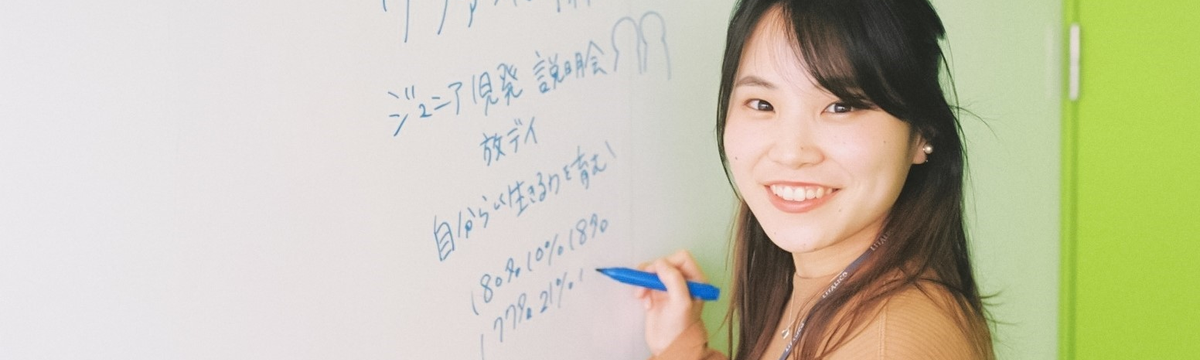 ジュニア児発 説明会
放デイ
自分らしく生きる力を育む
(80% 10% (8%
(77% 21%
LITALICO